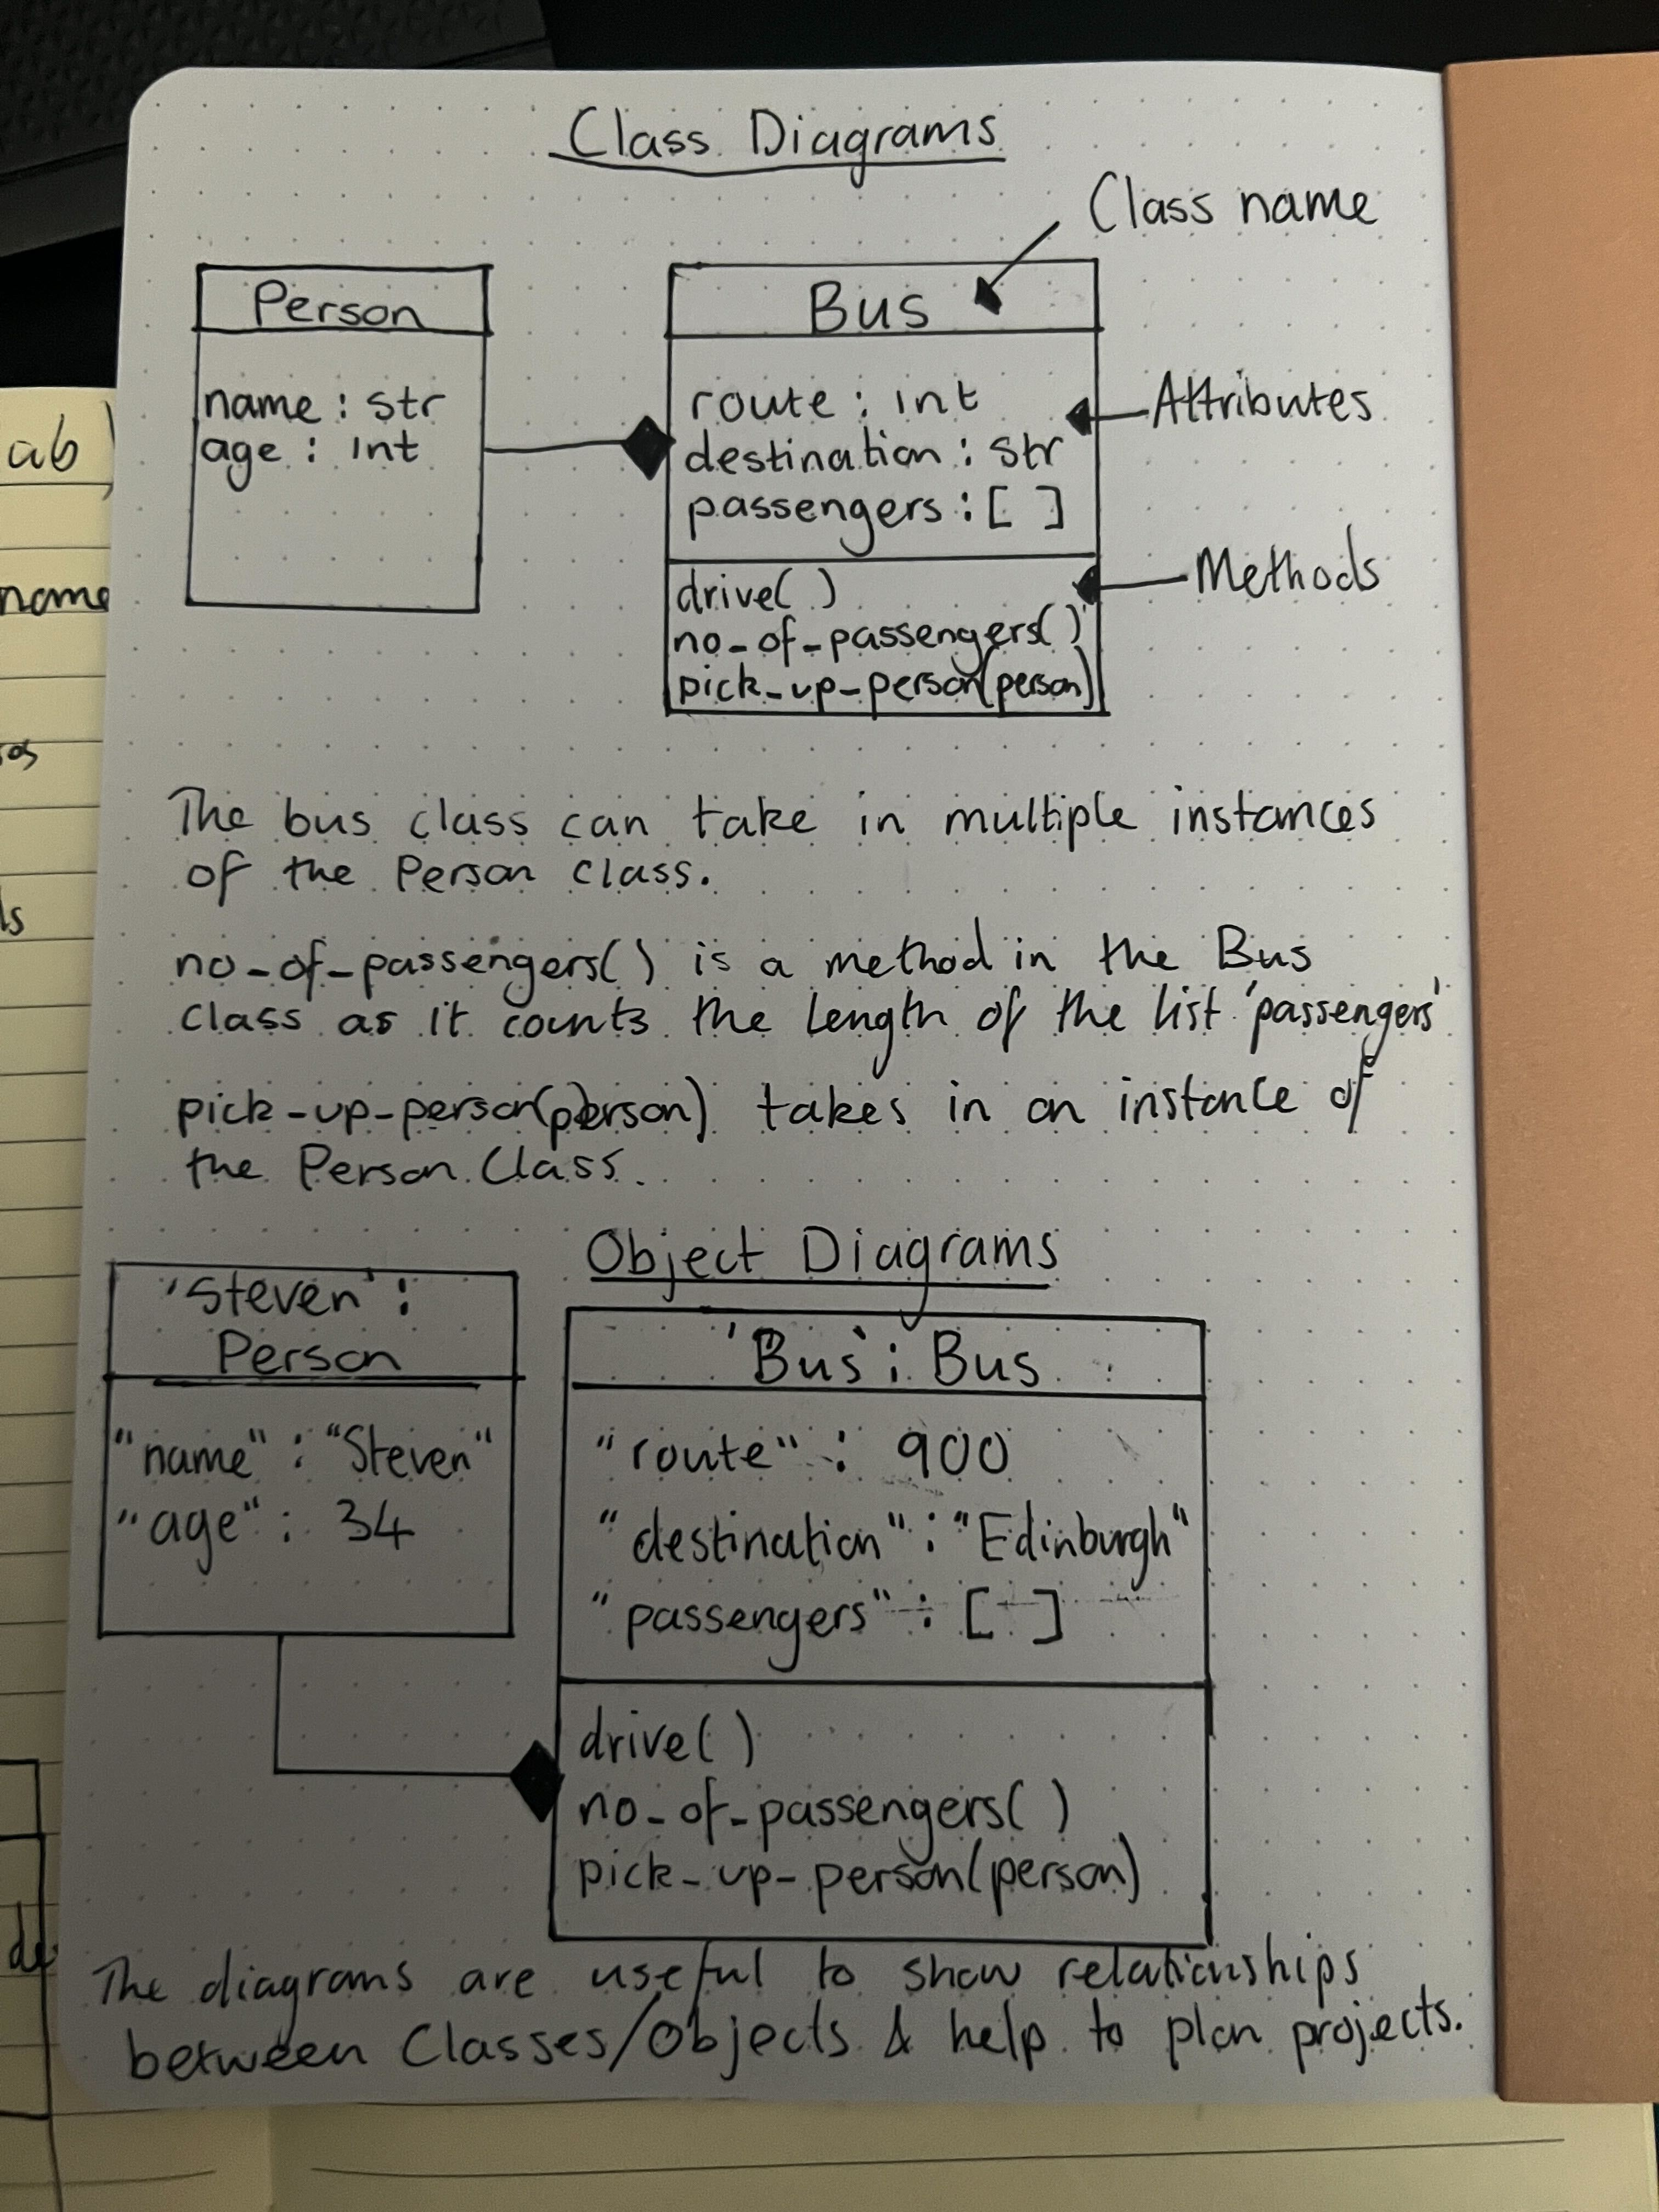 Class Diagrams
Class name
Person
name : str
age : int
Bus
route : int
destination : str
passengers : [ ]
Attributes
drive( )
no_of_passengers( )
pick_up_person(person)
Methods
The bus class can take in multiple instances
of the Person class.
no_of_passengers( ) is a method in the Bus
class as it counts the length of the list 'passengers'
pick_up_person(person) takes in an instance of
the Person Class.
Object Diagrams
'Steven' :
Person
"name" : "Steven"
"age" : 34
'Bus' : Bus
"route" : 900
"destination" : "Edinburgh"
"passengers" : [ ]
drive( )
no_of_passengers( )
pick_up_person(person)
The diagrams are useful to show relationships
between Classes/Objects & help to plan projects.
ab)
name
ls